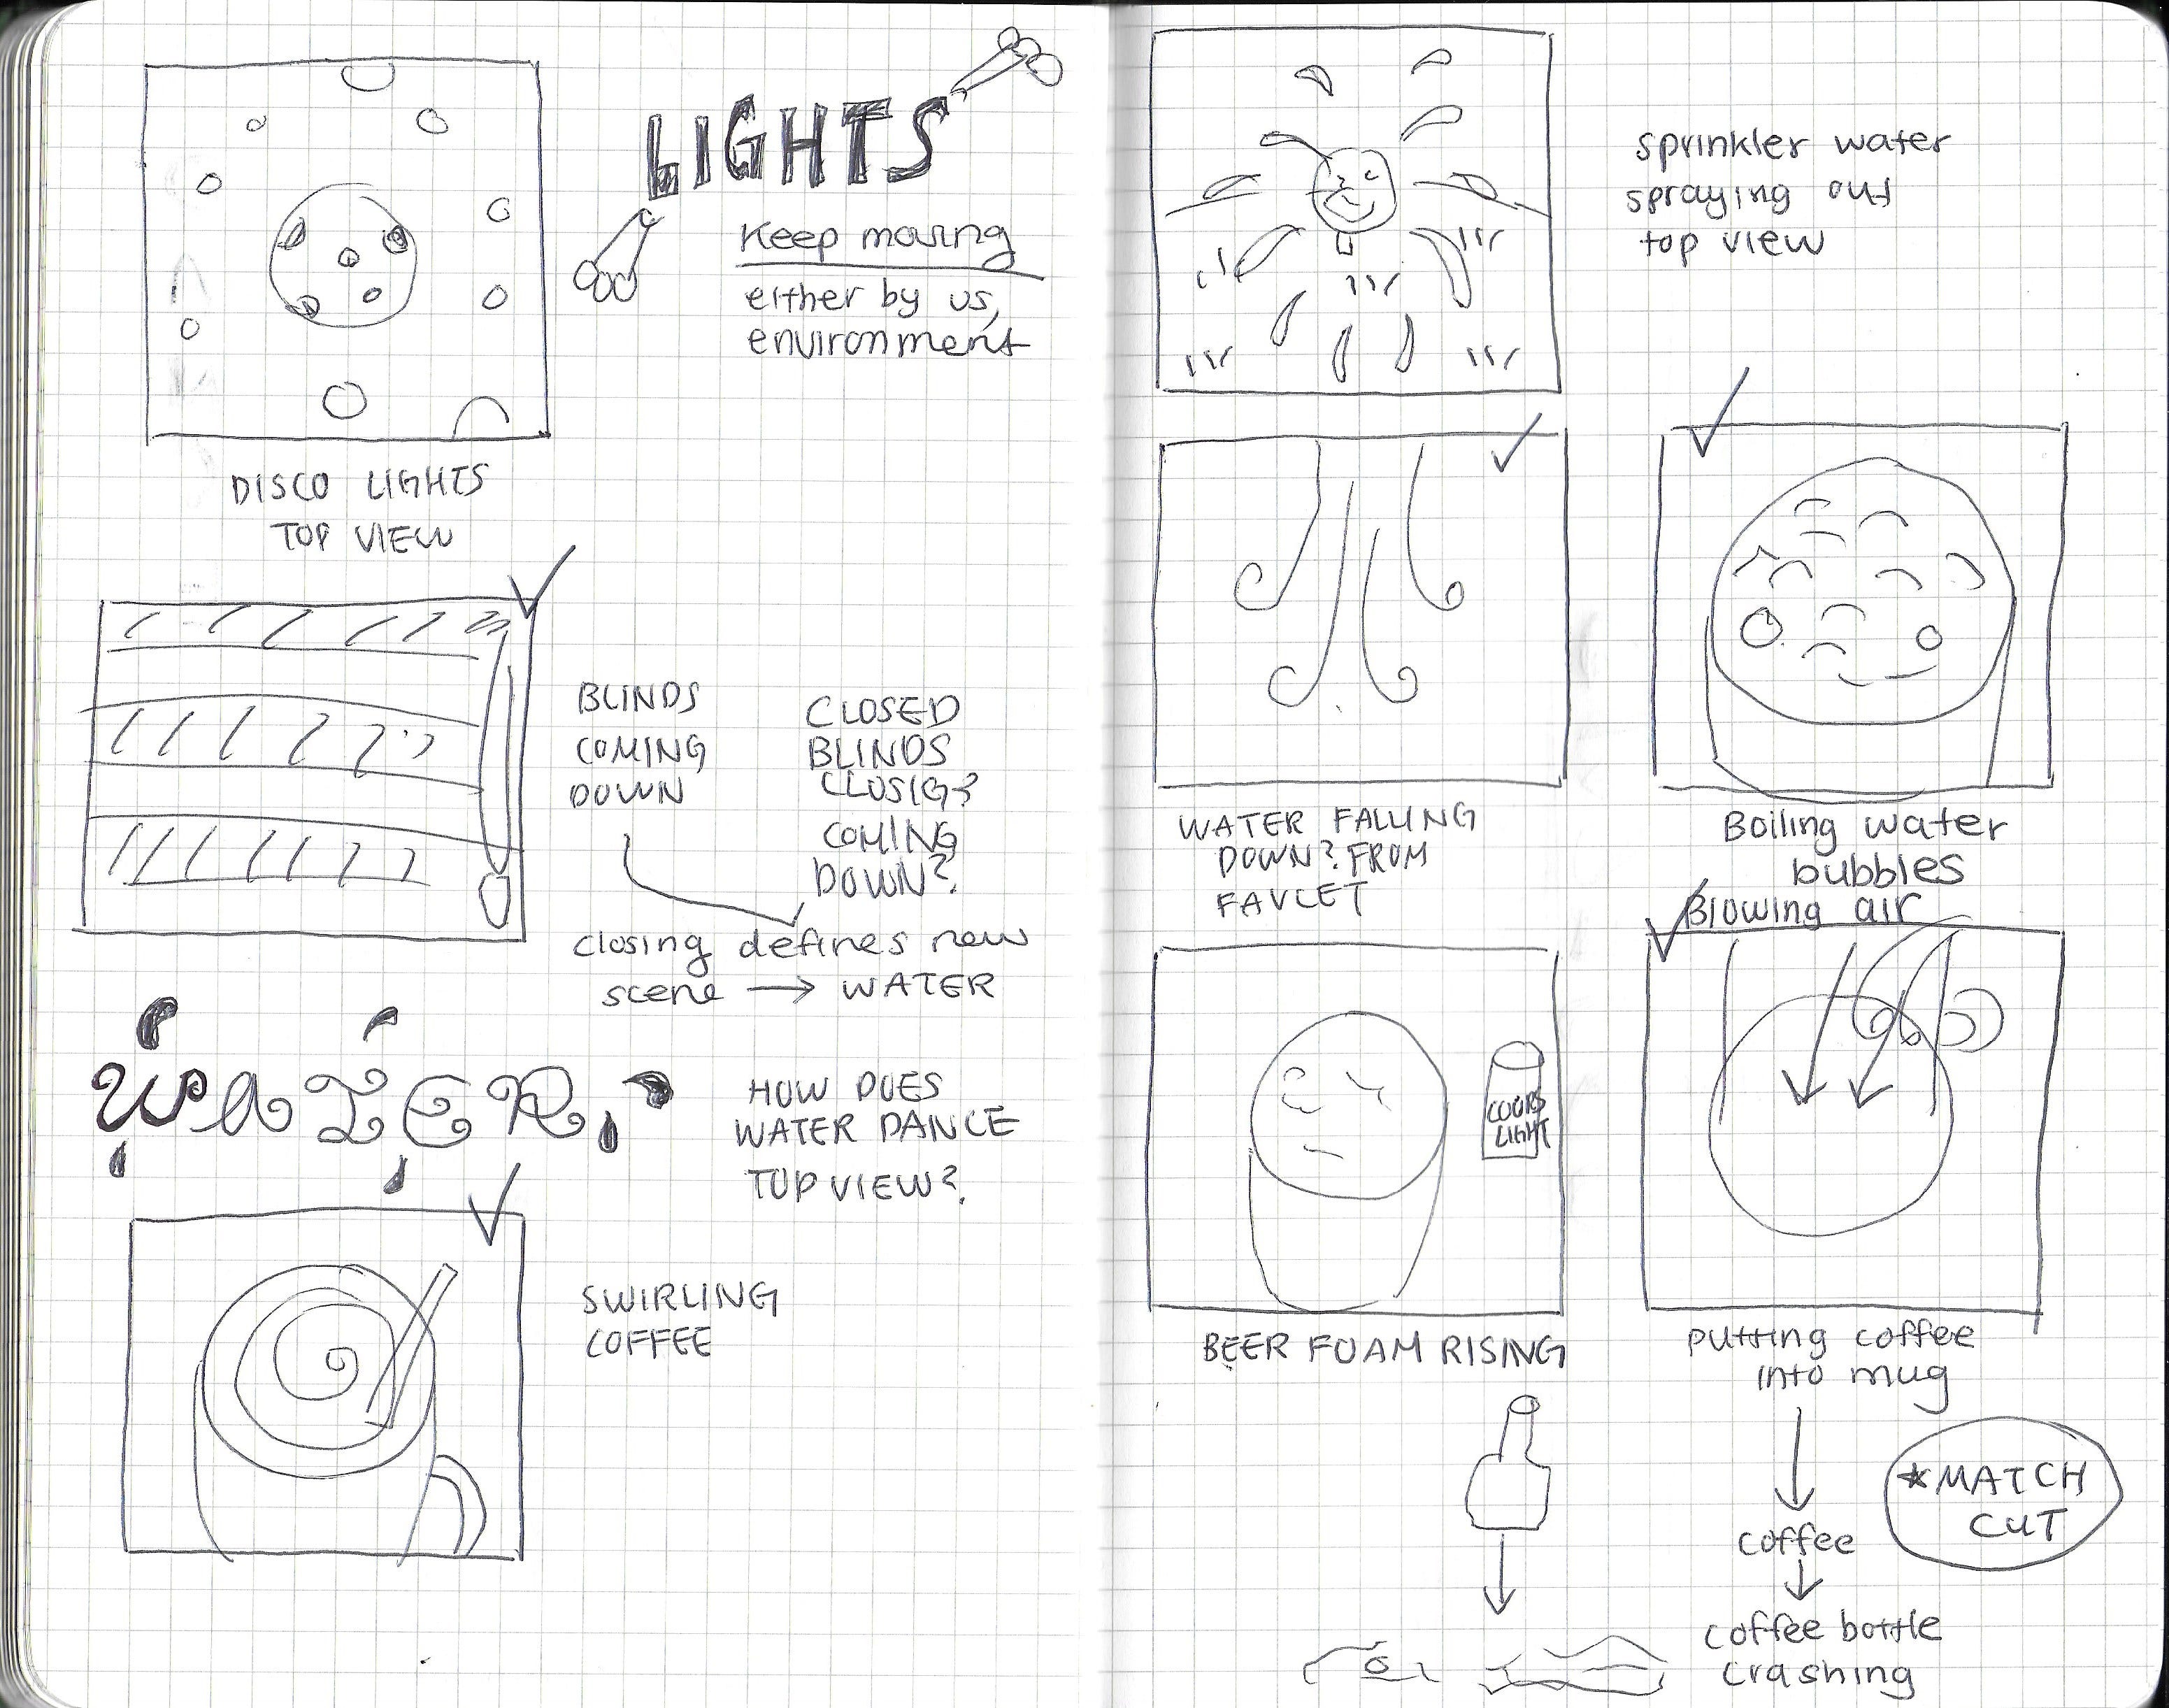 LIGHTS
Keep moving
either by us,
environment
DISCO LIGHTS
TOP VIEW
BLINDS
COMING
DOWN
CLOSED
BLINDS
CLOSIG?
COMING
DOWN?
closing defines new
scene → WATER
WATER
HOW DOES
WATER DANCE
TOP VIEW?
SWIRLING
COFFEE
sprinkler water
spraying out
top view
WATER FALLING
DOWN? FROM
FAUCET
Boiling water
bubbles
Blowing air
COORS
LIGHT
BEER FOAM RISING
putting coffee
into mug
*MATCH
CUT
coffee
coffee bottle
crashing